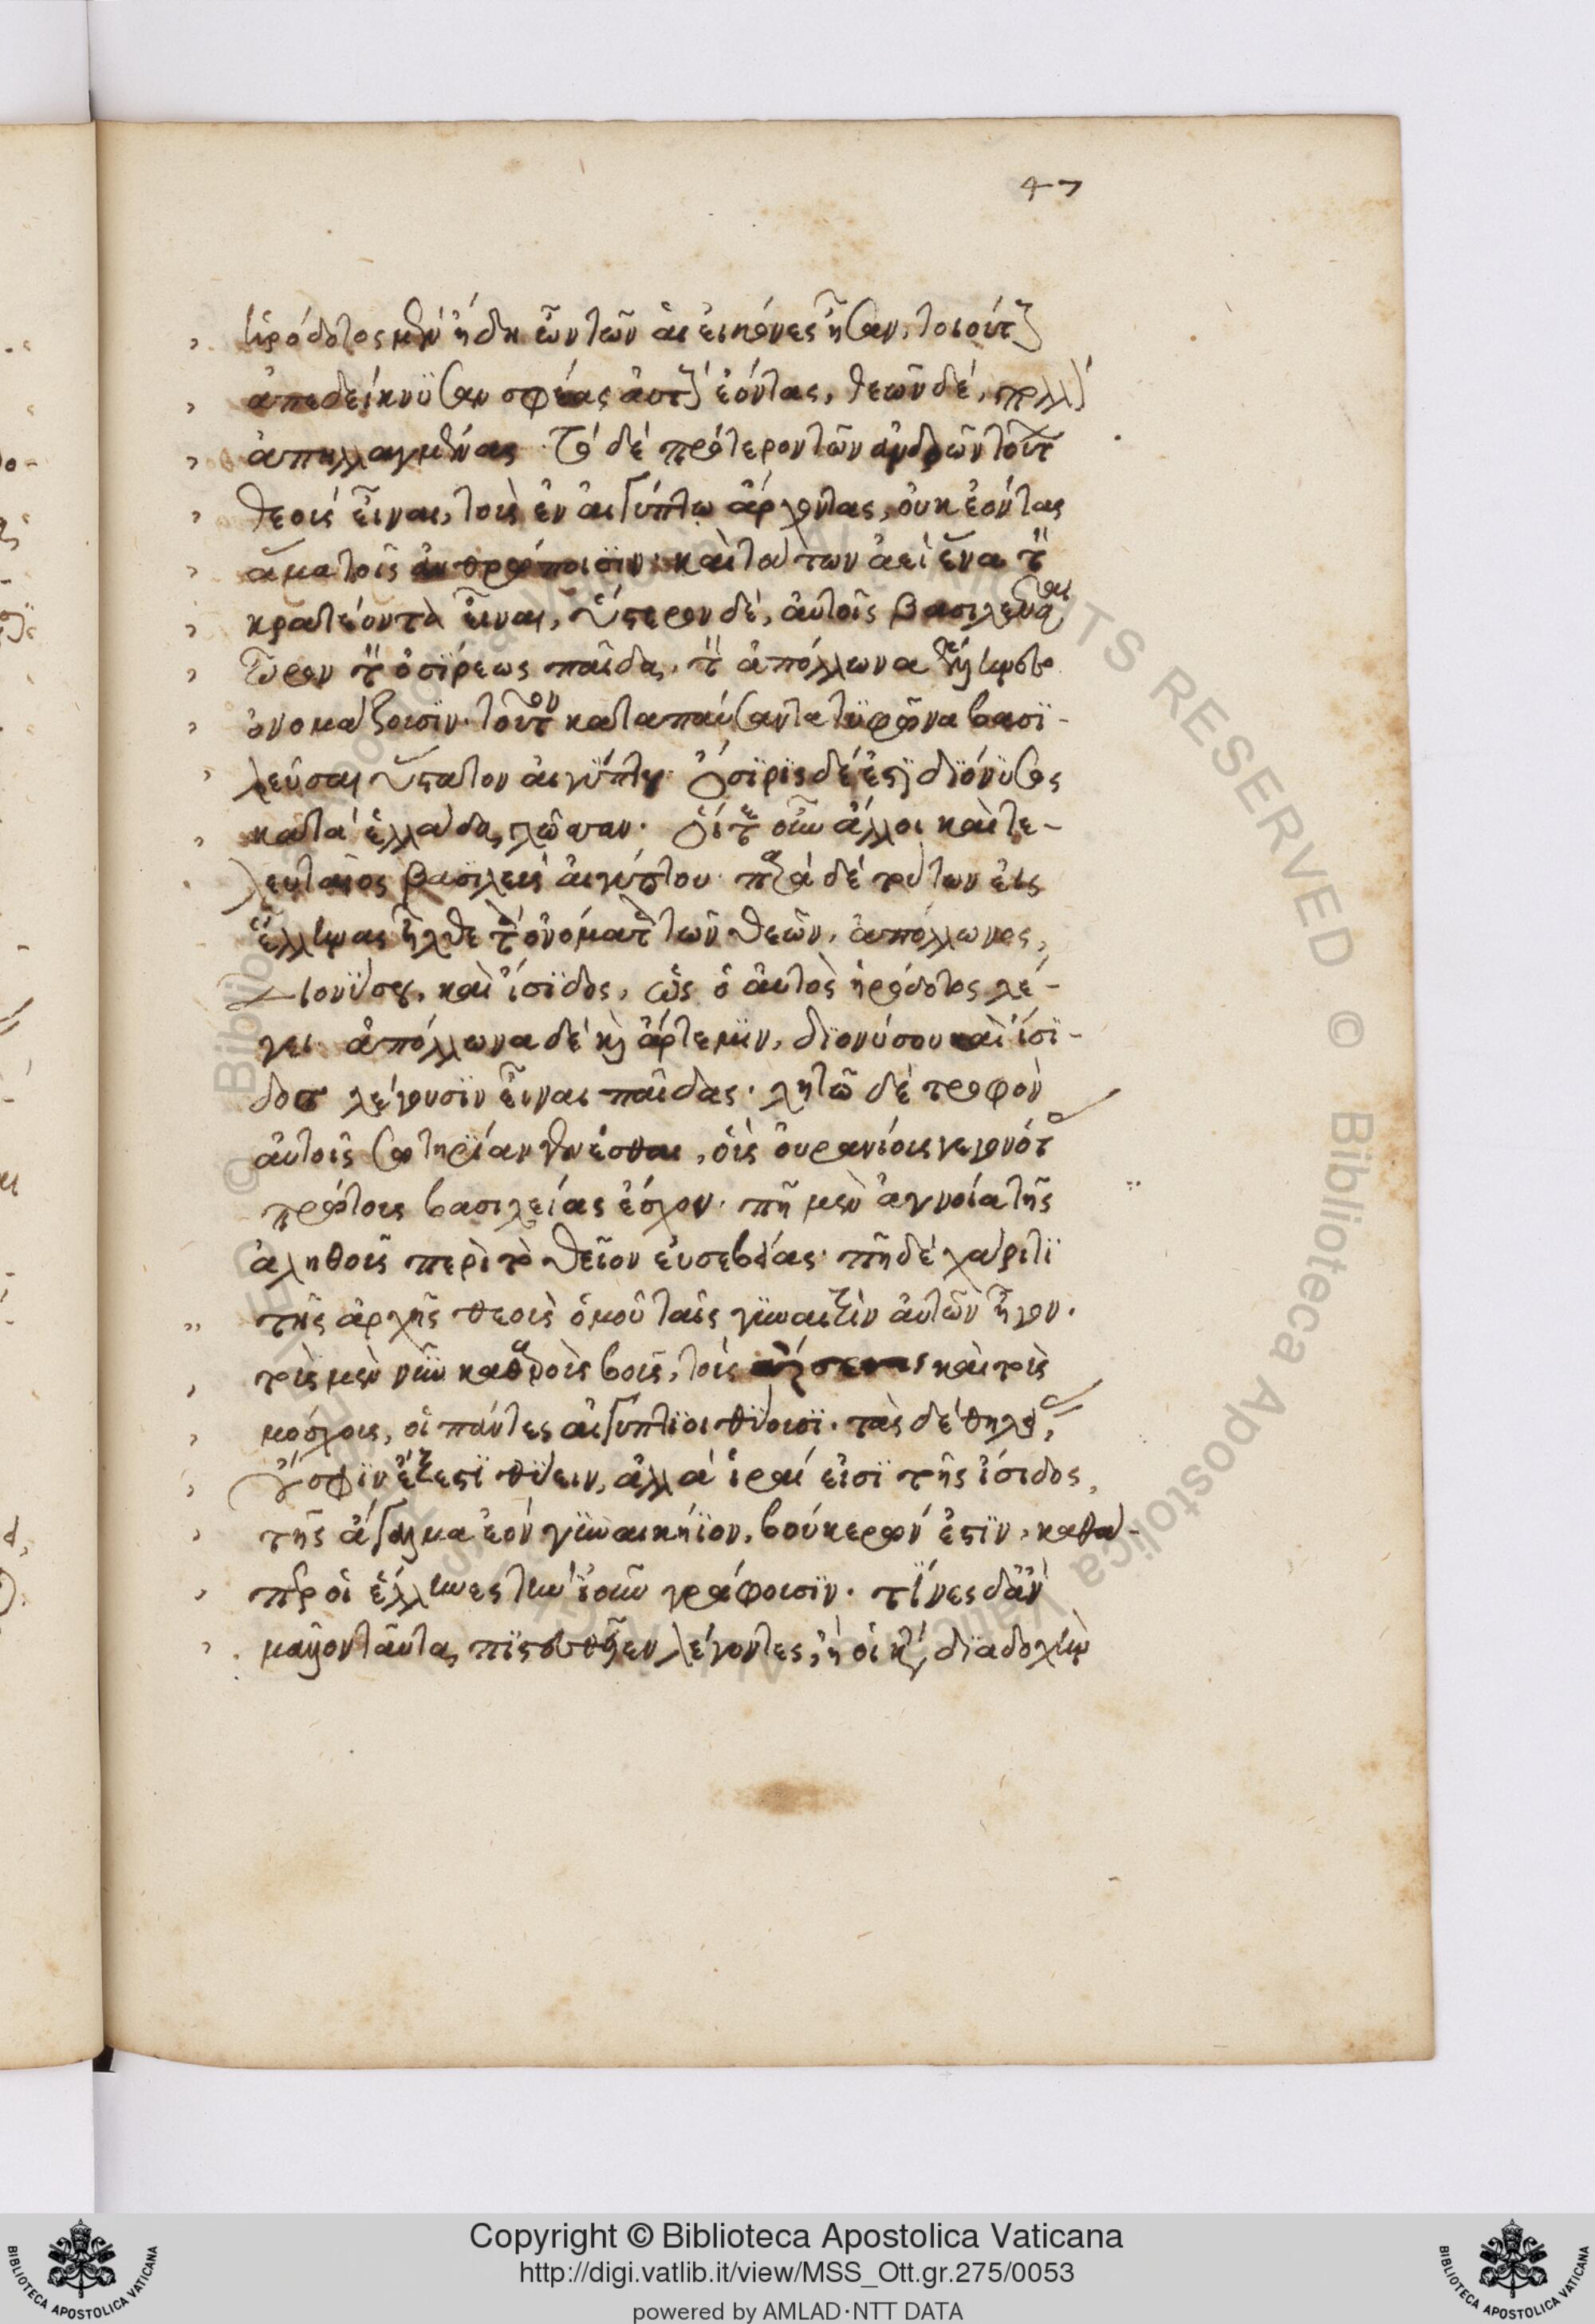 47
ἡρόδοτος μὲν ἤδη ὧν τῶν αἱ εἰκόνες ἦσαν, τοιούτους
ἀπεδείκνυσαν σφέας αὐτοὺς ἐόντας, θεῶν δὲ, πολλὸν
ἀπηλλαγμένας. τὸ δὲ πρότερον τῶν ἀνδρῶν τούτων
θεοὺς εἶναι, τοὺς ἐν αἰγύπτω ἄρχοντας, οὐκ ἐόντας
ἅμα τοῖς ἀνθρώποισιν. καὶ τούτων ἀεὶ ἕνα τὸν
κρατέοντα εἶναι, ὕστερον δὲ, αὐτοῖς βασιλεῦσαι
ὦρον τὸν ὀσίρεως παῖδα, τὸν ἀπόλλωνα ἕλληνες
ὀνομάζουσιν. τοῦτον καταπαύσαντα τυφῶνα βασι-
λεῦσαι ὕστατον αἰγύπτου. ὄσιρις δέ ἐστι διόνυσος
κατὰ ἑλλάδα γλῶσσαν. οἵτε οὖν ἄλλοι καὶ τε-
λευταῖος βασιλεὺς αἰγύπτου. παρὰ δὲ τούτων εἰς
ἕλληνας ἦλθε τὰ ὀνόματα τῶν θεῶν, ἀπόλλωνος,
διονύσου, καὶ ἴσιδος, ὡς ὁ αὐτὸς ἡρόδοτος λέ-
γει. ἀπόλλωνα δὲ καὶ ἄρτεμιν, διονύσου καὶ ἴσι-
δος λέγουσιν εἶναι παῖδας. λητῶ δὲ τροφὸν
αὐτοῖς σωτηρίαν γενέσθαι, οἷς οὐρανίους γεγονότας
πρώτους βασιλείας ἔσχον. πῆ μὲν ἀγνοία τῆς
ἀληθοῦς περὶ τὸ θεῖον εὐσεβείας. πῆ δὲ χάριτι
τῆς ἀρχῆς θεοὺς ὁμοῦ ταῖς γυναιξὶν αὐτῶν ἦγον.
τοὺς μὲν νῦν καθαροὺς βοῦς, τοὺς ἄρσενας καὶ τοὺς
μόσχους, οἱ πάντες αἰγύπτιοι θύουσι. τὰς δὲ θηλέας,
οὔ σφιν ἔξεστι θύειν, ἀλλὰ ἱραί εἰσι τῆς ἴσιδος,
τῆς ἄγαλμα ἐὸν γυναικήιον, βούκερών ἐστιν, καθά-
περ οἱ ἕλληνες τὴν ἰοῦν γράφουσιν. τίνες δ' ἂν
μᾶλλον ταῦτα πιστευθεῖεν λέγοντες, ἢ οἱ κατὰ διαδοχὴν
Copyright © Biblioteca Apostolica Vaticana
http://digi.vatlib.it/view/MSS_Ott.gr.275/0053
powered by AMLAD·NTT DATA